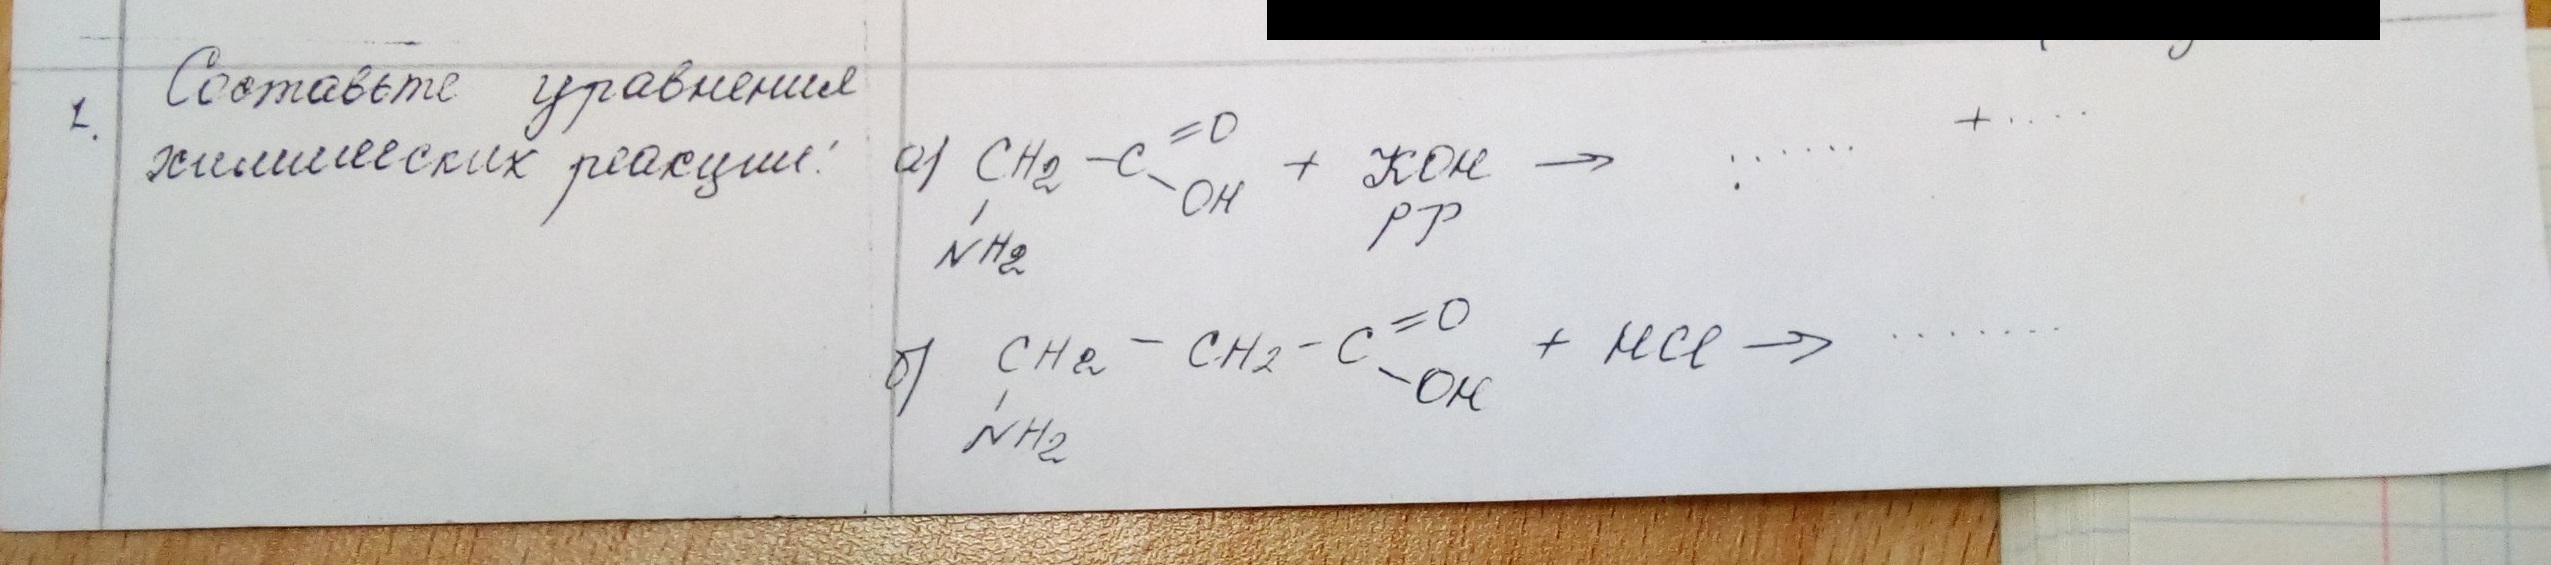 1.
Составьте уравнения
химических реакций:
а) CH2 - C =O - OH + KOH → ...... + ....
NH2 рр
б) CH2 - CH2 - C =O - OH + HCl → .......
NH2